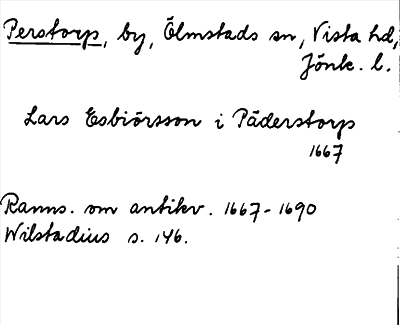 Perstorp, by, Ölmstads sn, Vista hd,
Jönk. l.
Lars Esbiörsson i Päderstorp
1667
Ranns. om antikv. 1667-1690
Wilstadius s. 146.